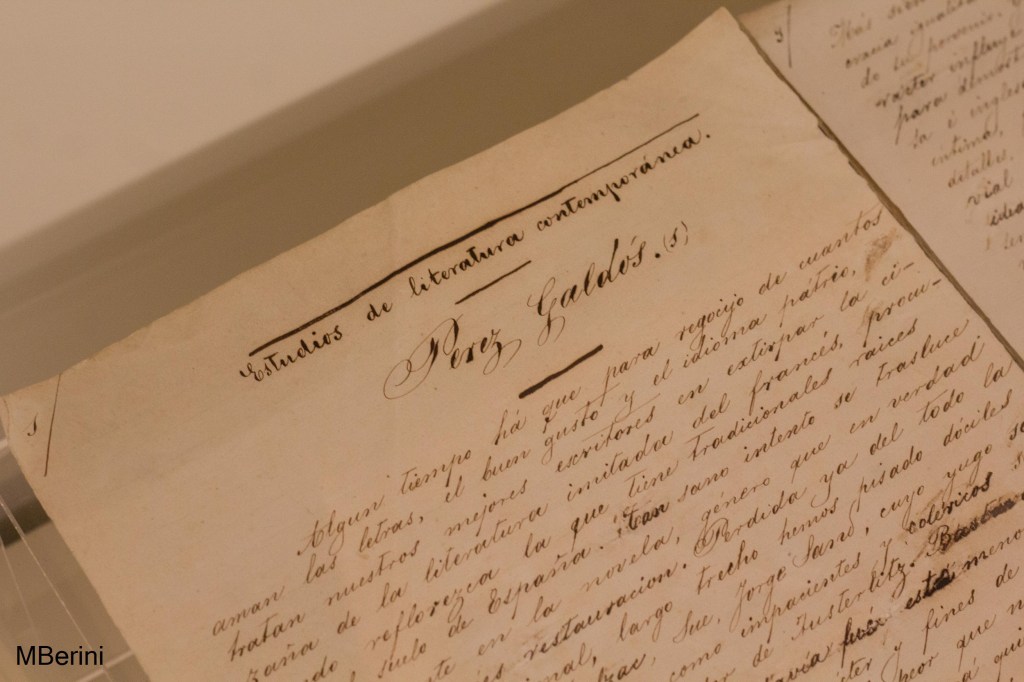 Estudios de literatura contemporánea.
Perez Galdós. (1)
1
Algun tiempo há que para regocijo de cuantos
aman las letras, el buen gusto y el idioma pátrio,
tratan nuestros mejores escritores en extirpar la ci-
zaña de la literatura imitada del francés, procu-
ando, reflorezca la que tiene tradicionales raices
suelo de España. Tan sano intento se trasluce
en la novela, género que en verdad
restauracion. Perdida ya del todo la
largo trecho hemos pisado dóciles
Sue, Jorge Sand, cuyo yugo
como impacientes y coléricos
de Austerlitz. Bastan
fué esta meno
y fines de
peor que
3
Más
de su porvenir,
rácter influye
para
la ó inglesa
íntima,
detalles.
vial
idea
MBerini